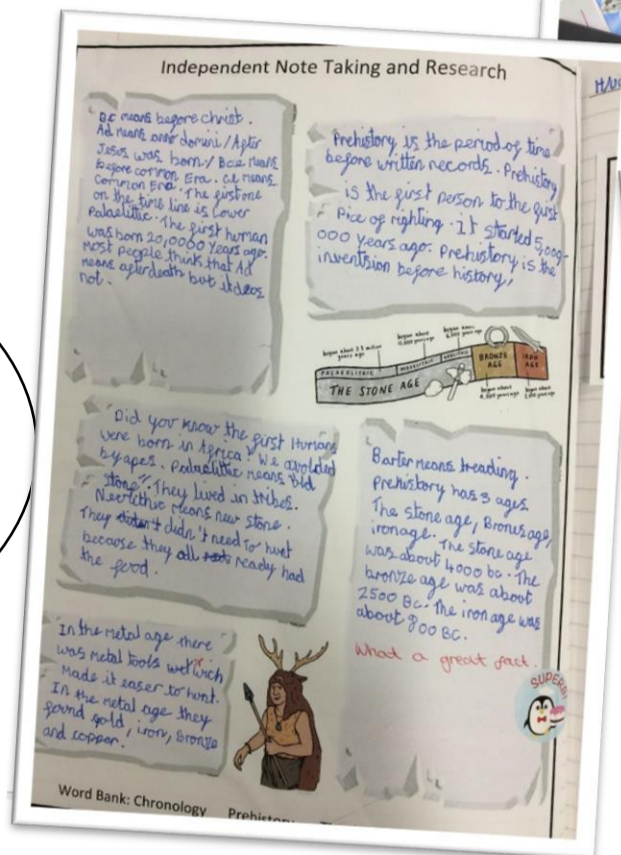 Independent Note Taking and Research
BC means before christ.
Ad means anno domini / After
Jesus was born / Bce means
before common Era. ce means
Common Era. The first one
on the time line is Lower
Palaelittic. The first human
was born 20,0000 years ago.
most people think that Ad
means after death but it does
not.
Prehistory is the period of time
before written records. Prehistory
is the first person to the first
Pice of righting. it started 5,000-
000 years ago. Prehistory is the
inventsion before history,
began about 3.3 million
years ago
began about
began about
PALAEOLITHIC
MESOLITHIC
NEOLITHIC
THE STONE AGE
BRONZE
AGE
IRON
AGE
began about
began about
Did you know the first Humans
were born in Africa! We avolded
by apes. Palaelittic means old
stone". They lived in tribes.
Neolithic means new stone.
They didn't need to hunt
because they all ready had
the food.
Barter means treading.
Prehistory has 3 ages
The stone age, Bronus age,
iron age. The stone age
was about 4000 bc. The
bronze age was about
2500 BC. The iron age was
about 800 BC.
What a great fact.
SUPERB!
In the metal age there
was metal tools wich
Made it easer to hunt.
In the metal age they
found gold, iron, Bronze
and coppor.
Word Bank: Chronology Prehistory